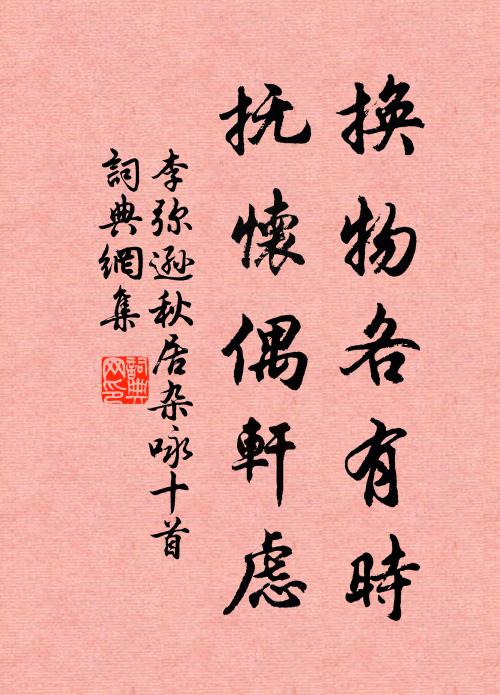 換物各有時
抚懷偶軒慮
李弥遜秋居杂咏十首
詞典網集
詞典網印